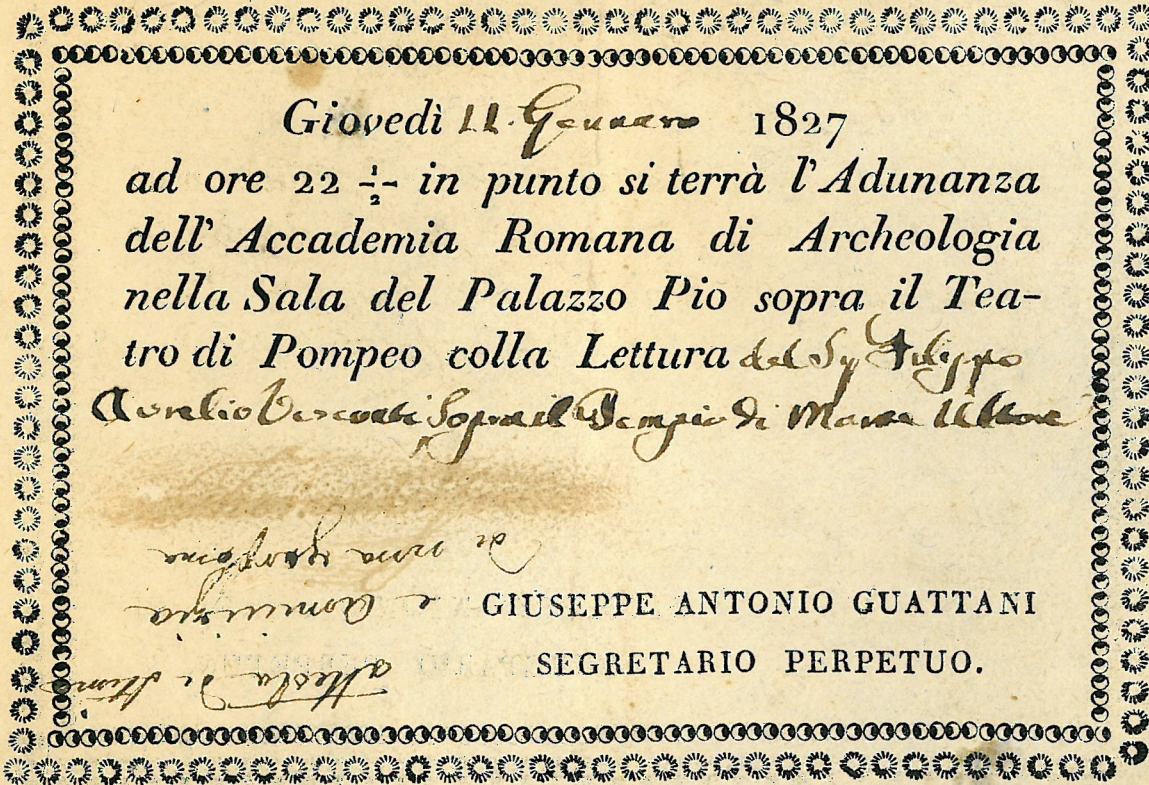 Giovedì 11. Gennaro 1827
ad ore 22 ½ in punto si terrà l'Adunanza
dell' Accademia Romana di Archeologia
nella Sala del Palazzo Pio sopra il Tea-
tro di Pompeo colla Lettura del Sig Filippo
Aurelio Visconti Sopra il Tempio di Marte Ultore
GIUSEPPE ANTONIO GUATTANI
SEGRETARIO PERPETUO.
attesta di stima
e Amicizia
di una